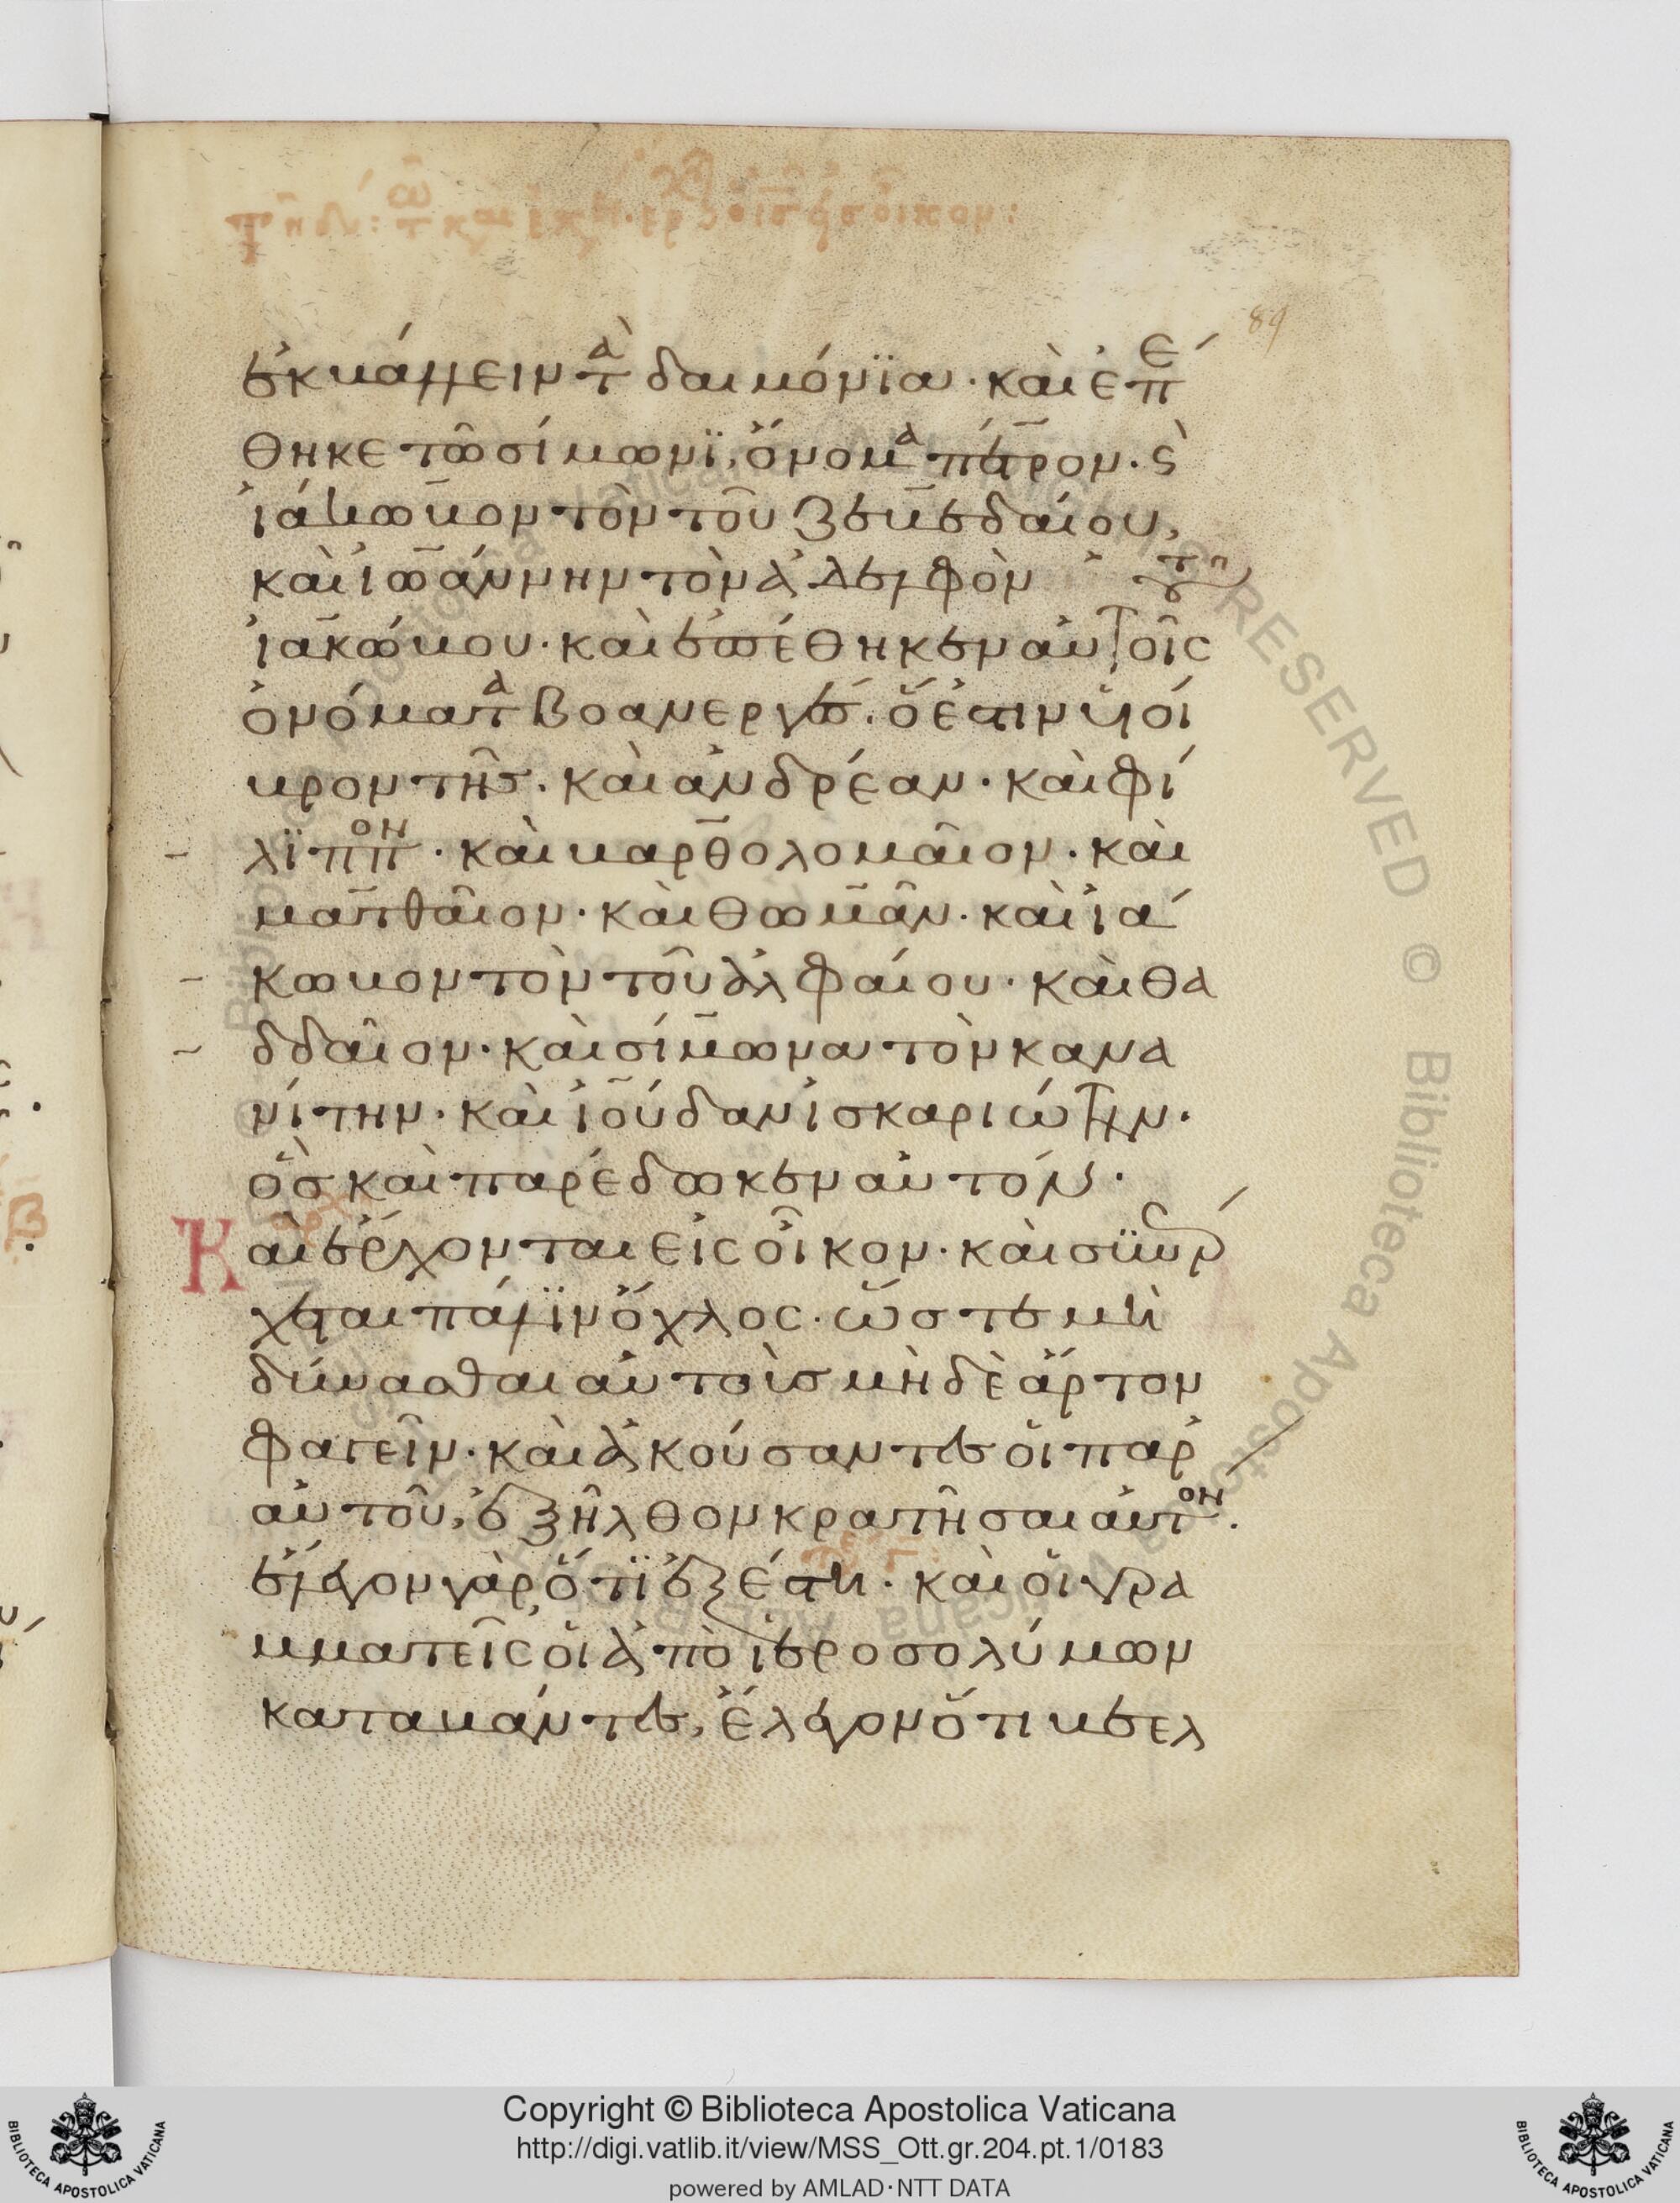 89
ἐκβάλλειν τὰ δαιμόνϊα · καὶ ἐπέ
θηκε τῶ σίμωνϊ, ὄνομα πέτρον · ϛ
ἰάκωβον τὸν τοῦ ζεβεδαίου,
καὶ ἰωάννην τὸν ἀδελφὸν
ἰακώβου · καὶ ἐπέθηκεν αὐτοῖς
ὀνόματα βοανεργές · ὅ ἐστιν υἱοί
βροντῆς · καὶ ἀνδρέαν · καὶ φί
λϊππον · καὶ βαρθολομαῖον · καὶ
ματθαῖον · καὶ θωμᾶν · καὶ ἰά
κωβον τὸν τοῦ ἀλφαίου · καὶ θα
δδαῖον · καὶ σίμωνα τὸν κανα
νίτην · καὶ ἰούδαν ἰσκαριώτην ·
ὃς καὶ παρέδωκεν αὐτόν ·
Καὶ ἔρχονται εἰς οἶκον · καὶ συνέρ
χεται πάλϊν ὄχλος · ὥστε μὴ
δύνασθαι αὐτοὺς μὴδὲ ἄρτον
φαγεῖν · καὶ ἀκούσαντες οἱ παρ᾿
αὐτοῦ, ἐξῆλθον κρατῆσαι αὐτον ·
ἔλεγον γὰρ, ὅτϊ ἐξέστη · καὶ οἱ γρα
μματεῖς οἱ ἀπὸ ἱεροσολύμων
καταβάντες, ἔλεγον ὅτι βεελ
Copyright © Biblioteca Apostolica Vaticana
http://digi.vatlib.it/view/MSS_Ott.gr.204.pt.1/0183
powered by AMLAD·NTT DATA
BIBLIOTECA APOSTOLICA VATICANA
BIBLIOTECA APOSTOLICA VATICANA